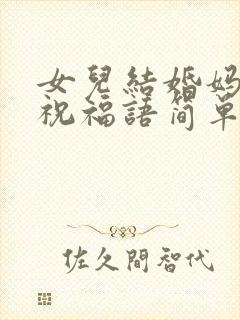 女兒結婚媽
祝福語简單
佐久間智代